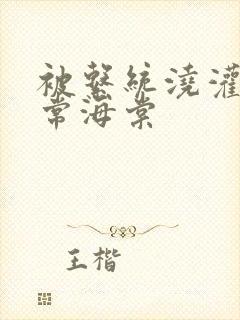 被繫統澆灌
常海棠
王楷